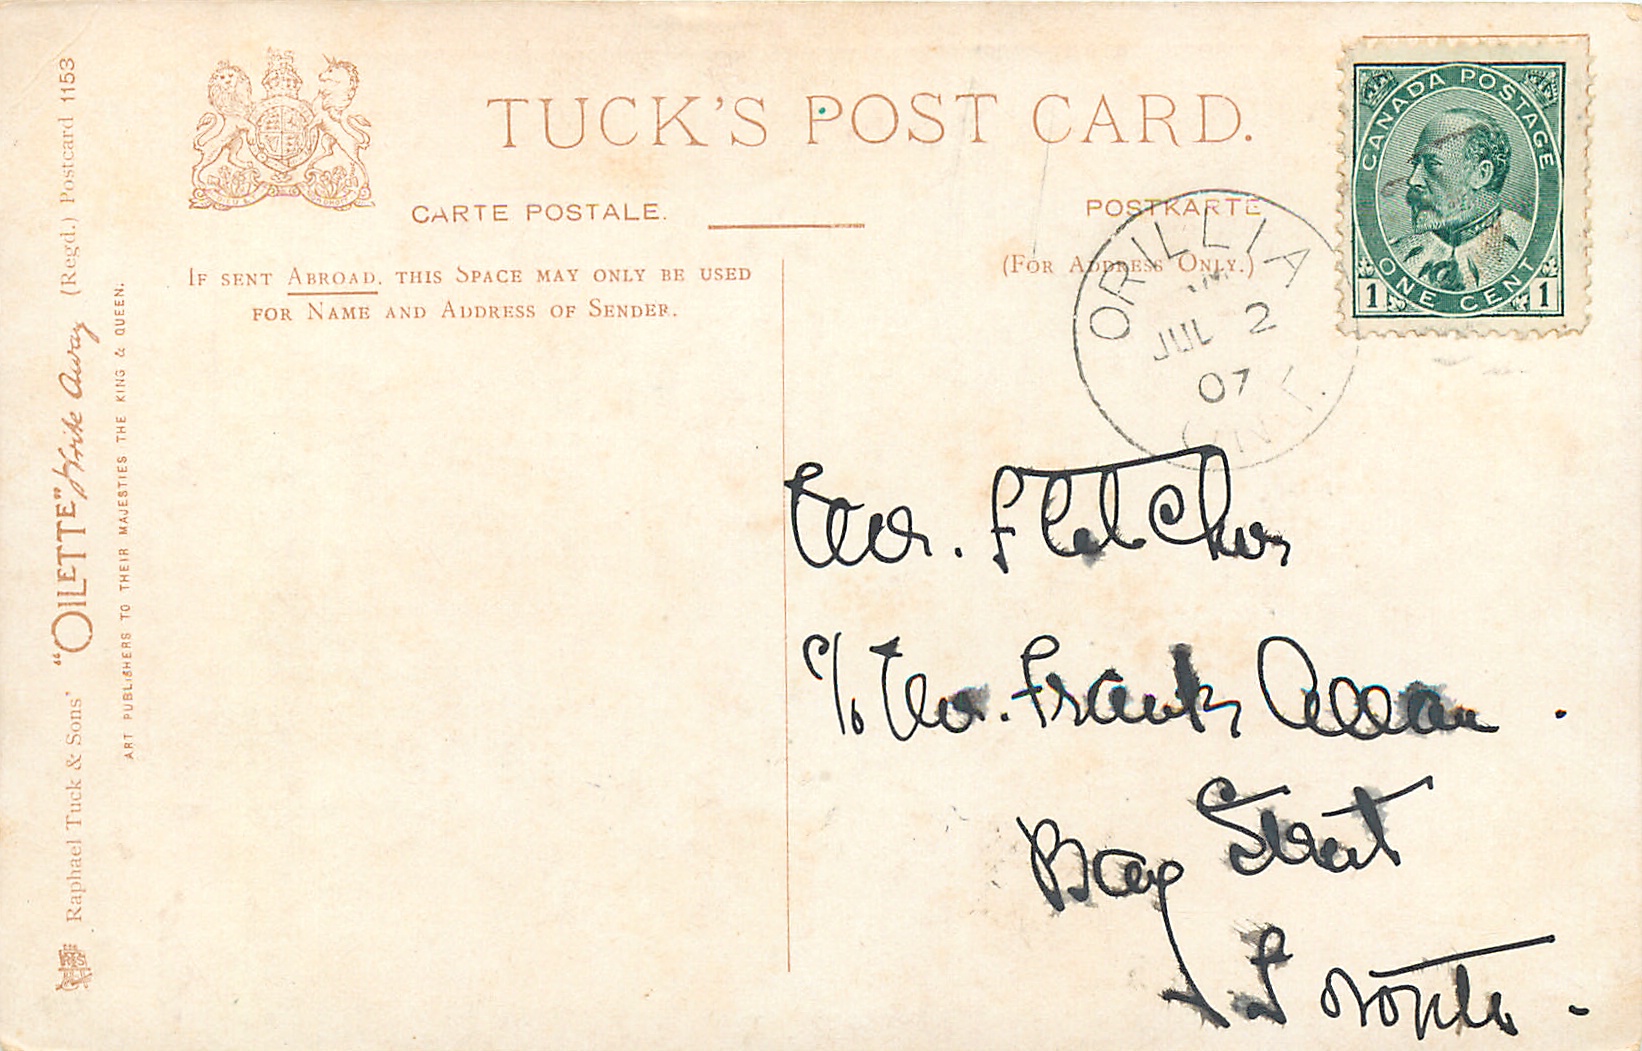 TUCK'S POST CARD.
CARTE POSTALE.
POSTKARTE
IF SENT ABROAD, THIS SPACE MAY ONLY BE USED
FOR NAME AND ADDRESS OF SENDER.
(FOR ADDRESS ONLY.)
CANADA POSTAGE
1 ONE CENT 1
ORILLIA
JUL 2
07
ONT.
Mr. Fletcher
c/o Mr. Frank Allan.
Bay Street
Toronto.
Raphael Tuck & Sons' "OILETTE" Write Away (Regd.) Postcard 1153
ART PUBLISHERS TO THEIR MAJESTIES THE KING & QUEEN.